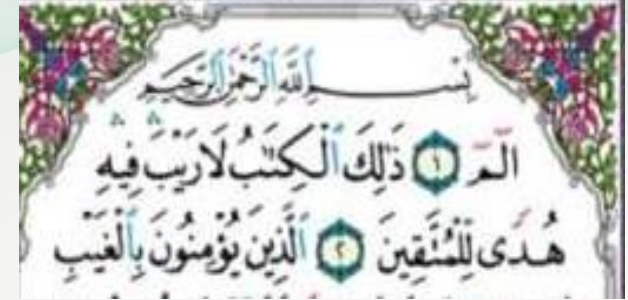 بِسْمِ ٱللَّهِ ٱلرَّحْمَٰنِ ٱلرَّحِيمِ
الٓمٓ ١ ذَٰلِكَ ٱلْكِتَٰبُ لَا رَيْبَ ۛ فِيهِ ۛ
هُدًى لِّلْمُتَّقِينَ ٢ ٱلَّذِينَ يُؤْمِنُونَ بِٱلْغَيْبِ